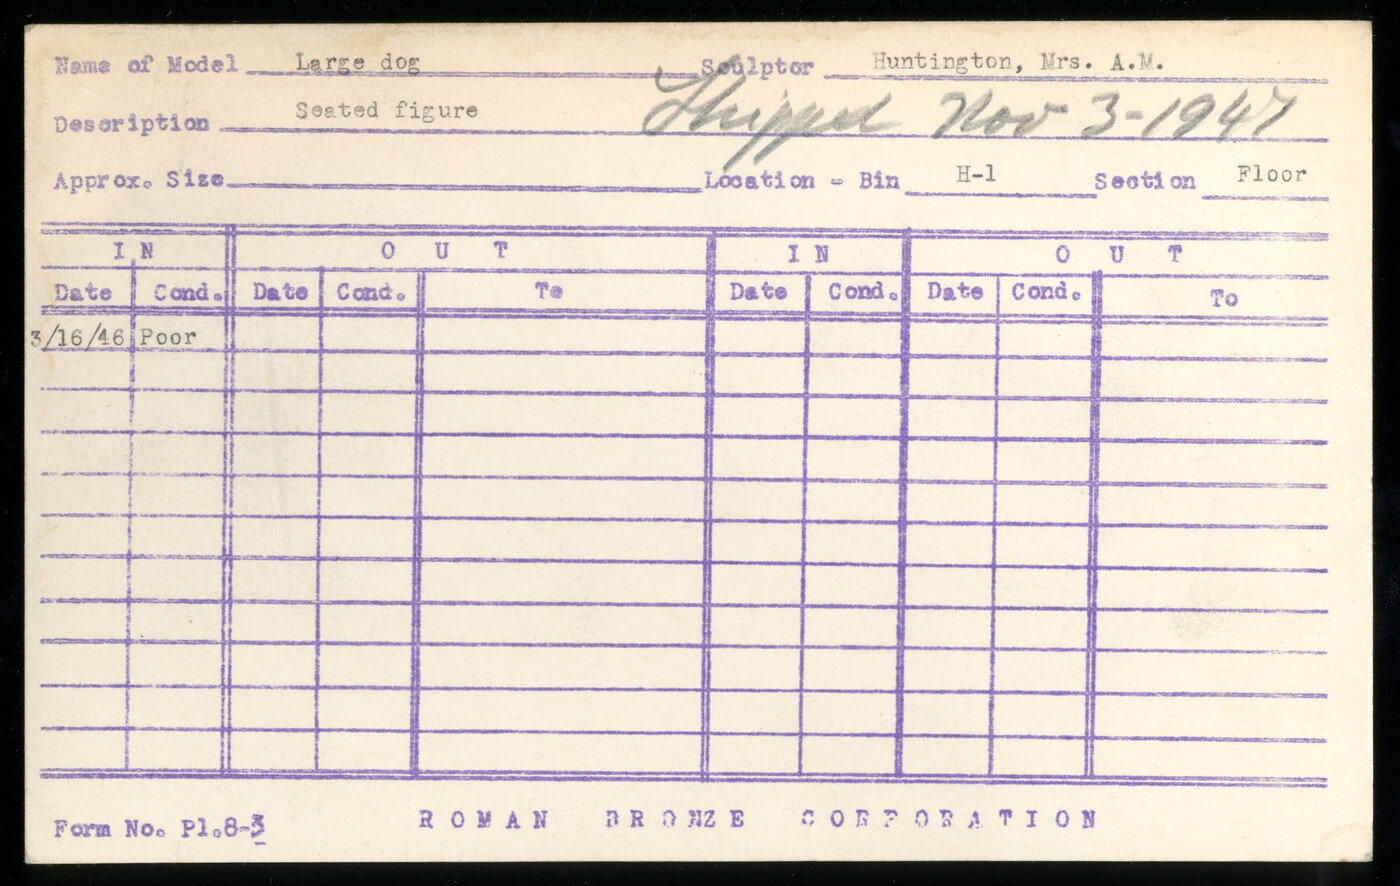 Name of Model Large dog Sculptor Huntington, Mrs. A.M.
Description Seated figure Shipped Nov 3-1947
Approx. Size Location - Bin H-1 Section Floor
IN OUT IN OUT
Date Cond. Date Cond. To Date Cond. Date Cond. To
3/16/46 Poor
Form No. Pl.8-3 ROMAN BRONZE CORPORATION